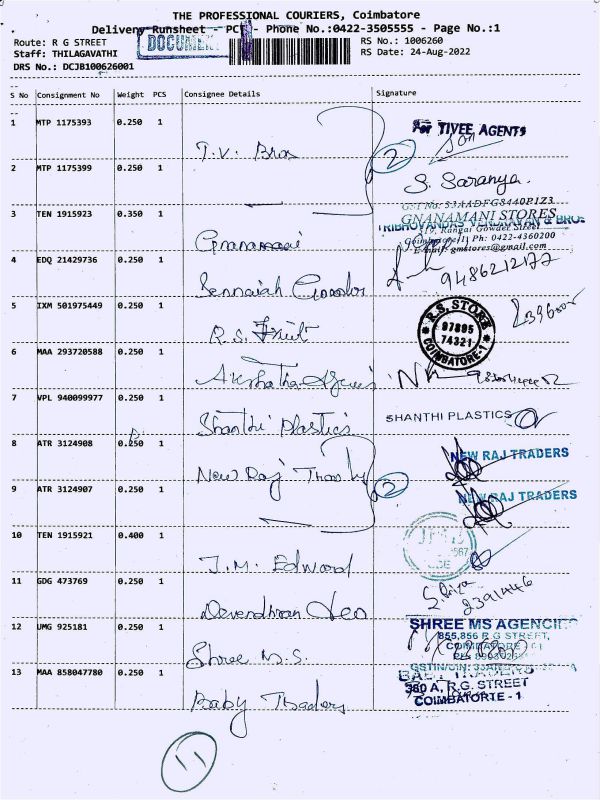 THE PROFESSIONAL COURIERS, Coimbatore
Delivery Runsheet - PCT - Phone No.:0422-3505555 - Page No.:1
DOCUMENT
Route: R G STREET
Staff: THILAGAVATHI
DRS No.: DCJB100626001
RS No.: 1006260
RS Date: 24-Aug-2022
S No Consignment No Weight PCS Consignee Details Signature
1 MTP 1175393 0.250 1 T.V. Bros For TIVEE AGENTS
2
2 MTP 1175399 0.250 1 S. Saranya
3 TEN 1915923 0.350 1 Gnanamani
GST No. 33AADFG8440P1Z3
GNANAMANI STORES
Rangai Gowder Street
Coimbatore-1| Ph: 0422-4360200
E-mail: gmstores@gmail.com
4 EDQ 21429736 0.250 1 9486212177
5 IXM 501975449 0.250 1 R.S. Fruit
R.S. STORE
97895
74321
COIMBATORE-1
6 MAA 293720588 0.250 1
7 VPL 940099977 0.250 1 Shanthi Plastics SHANTHI PLASTICS
8 ATR 3124908 0.250 1 New Raj Traders NEW RAJ TRADERS
2
9 ATR 3124907 0.250 1 NEW RAJ TRADERS
10 TEN 1915921 0.400 1 J.M. Edward
11 GDG 473769 0.250 1 Devendhran 2391446
12 UMG 925181 0.250 1 Shree M.S.
SHREE MS AGENCIES
855,856 R G STREET,
COIMBATORE
13 MAA 858047780 0.250 1 Baby Traders
BABY TRADERS
380 A, R.G. STREET
COIMBATORTE - 1
11